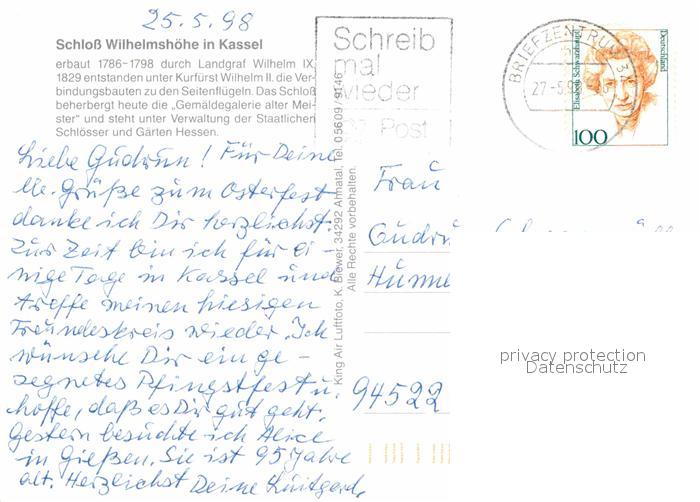 25.5.98
Schloß Wilhelmshöhe in Kassel
erbaut 1786–1798 durch Landgraf Wilhelm IX.
1829 entstanden unter Kurfürst Wilhelm II. die Ver-
bindungsbauten zu den Seitenflügeln. Das Schloß
beherbergt heute die „Gemäldegalerie alter Mei-
ster“ und steht unter Verwaltung der Staatlichen
Schlösser und Gärten Hessen.
Liebe Gudrun! Für Deine
lb. Grüße zum Osterfest
danke ich Dir herzlichst.
Zur Zeit bin ich für ei-
nige Tage in Kassel und
treffe meinen hiesigen
Freundeskreis wieder. Ich
wünsche Dir ein ge-
segnetes Pfingstfest u.
hoffe, daß es Dir gut geht.
Gestern besuchte ich Alice
in Gießen. Sie ist 95 Jahre
alt. Herzlichst Deine Luitgard
King Air Luftfoto, K. Biewer, 34292 Ahnatal, Tel. 05609 / 9146
Alle Rechte vorbehalten.
Schreib
mal
wieder
Post
BRIEFZENTRUM 34
27.-5.9
Elisabeth Schwarzhaupt
Deutschland
100
Frau
Gudru
Humme
94522
privacy protection
Datenschutz